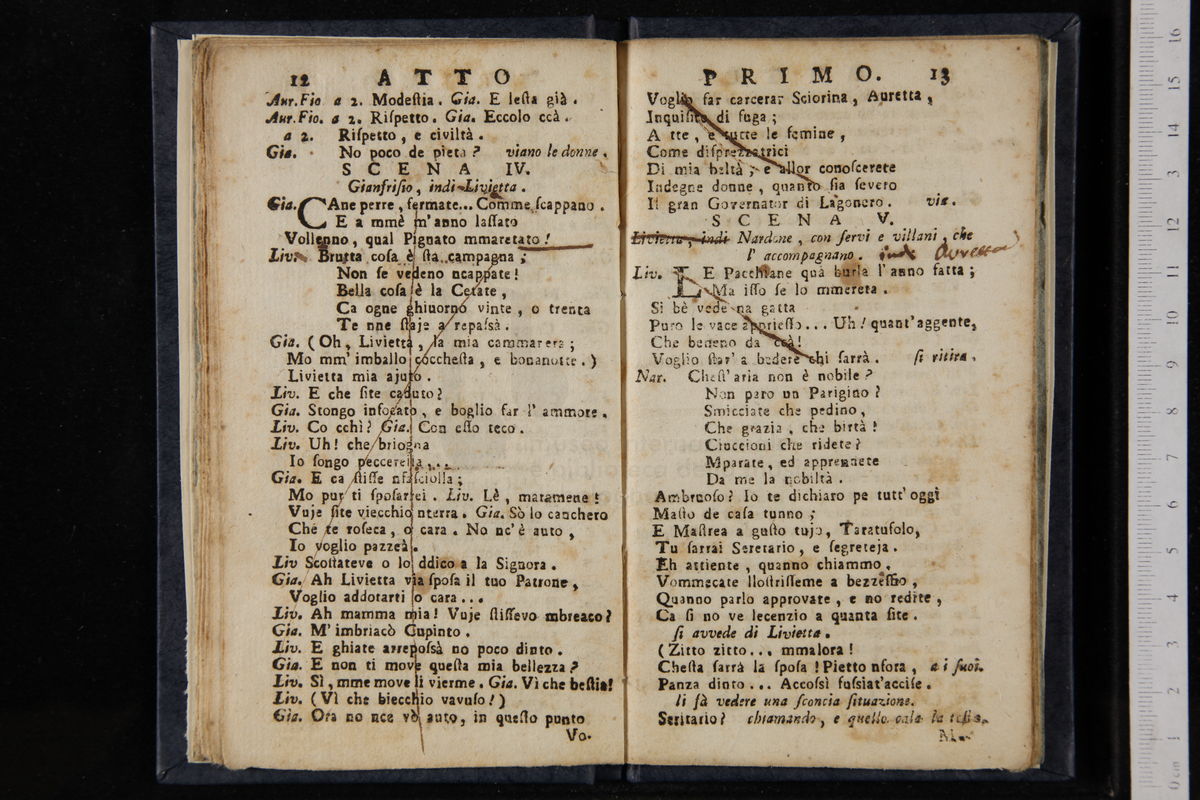 12 ATTO
Aur. Fio a 2. Modeſtia. Gia. E leſta già.
Aur. Fio. a 2. Riſpetto. Gia. Eccolo ccà.
a 2. Riſpetto, e civiltà.
Gia. No poco de pietà? viano le donne.
SCENA IV.
Gianfriſio, indi Livietta.
Gia. CAne perre, fermate... Comme ſcappano.
E a mmè m'anno laſſato
Vollenno, qual Pignato mmaretato!
Liv. Brutta coſa è ſta campagna;
Non ſe vedeno ncappate!
Bella coſa è la Cetate,
Ca ogne ghiuorno vinte, o trenta
Te nne ſtaje a repaſsà.
Gia. (Oh, Livietta, la mia cammarera;
Mo mm' imballo coccheſta, e bonanotte.)
Livietta mia ajuto.
Liv. E che ſite caduto?
Gia. Stongo infogato, e boglio far l' ammore.
Liv. Co cchì? Gia. Con eſſo teco.
Liv. Uh! che briogna
Io ſongo peccerella...
Gia. E ca ſtiſſe nfaſciolla;
Mo pur ti ſpoſarrei. Liv. Lè, maramene!
Vuje ſite viecchio nterra. Gia. Sò lo canchero
Che te roſeca, o cara. No nc'è auto,
Io voglio pazzeà.
Liv Scoſtateve o lo ddico a la Signora.
Gia. Ah Livietta via ſpoſa il tuo Patrone,
Voglio addotarti o cara...
Liv. Ah mamma mia! Vuje ſtiſſevo mbreaco?
Gia. M' imbriacò Cupinto.
Liv. E ghiate arrepoſsà no poco dinto.
Gia. E non ti move queſta mia bellezza?
Liv. Sì, mme move li vierme. Gia. Vì che beſtia!
Liv. (Vì che biecchio vavuſo!)
Gia. Ora no nce vò auto, in queſto punto
Vo.
PRIMO. 13
Voglio far carcerar Sciorina, Auretta,
Inquiſite di fuga;
A tte, e tutte le femine,
Come diſprezzatrici
Di mia beltà; e allor conoſcerete
Indegne donne, quanto ſia ſevero
Il gran Governator di Lagonero. via.
SCENA V.
Livietta, indi Nardone, con ſervi e villani, che
l' accompagnano. indi Auretta
Liv. LE Pacchiane quà burla l'anno fatta;
Ma iſſo ſe lo mmereta.
Si bè vede na gatta
Puro le vace apprieſſo... Uh! quant'aggente,
Che beneno da ccà!
Voglio ſtar' a bedere chi ſarrà. ſi ritira.
Nar. Cheſt' aria non è nobile?
Non paro un Parigino?
Smicciate che pedino,
Che grazia, che birtà!
Ciuccioni che ridete?
Mparate, ed apprennete
Da me la nobiltà.
Ambruoſo? Io te dichiaro pe tutt' oggi
Maſto de caſa tunno;
E Maſtrea a guſto tujo, Taratufolo,
Tu ſarrai Seretario, e ſegreteja.
Eh attiente, quanno chiammo,
Vommecate lloſtriſſeme a bezzeffio,
Quanno parlo approvate, e no redite,
Ca ſi no ve lecenzio a quanta ſite.
ſi avvede di Livietta.
(Zitto zitto... mmalora!
Cheſta ſarrà la ſpoſa! Pietto nfora, a i ſuoi.
Panza dinto... Accoſsì fuſsiat'acciſe.
li fà vedere una ſconcia ſituazione.
Seritario? chiamando, e quello cala la teſta.